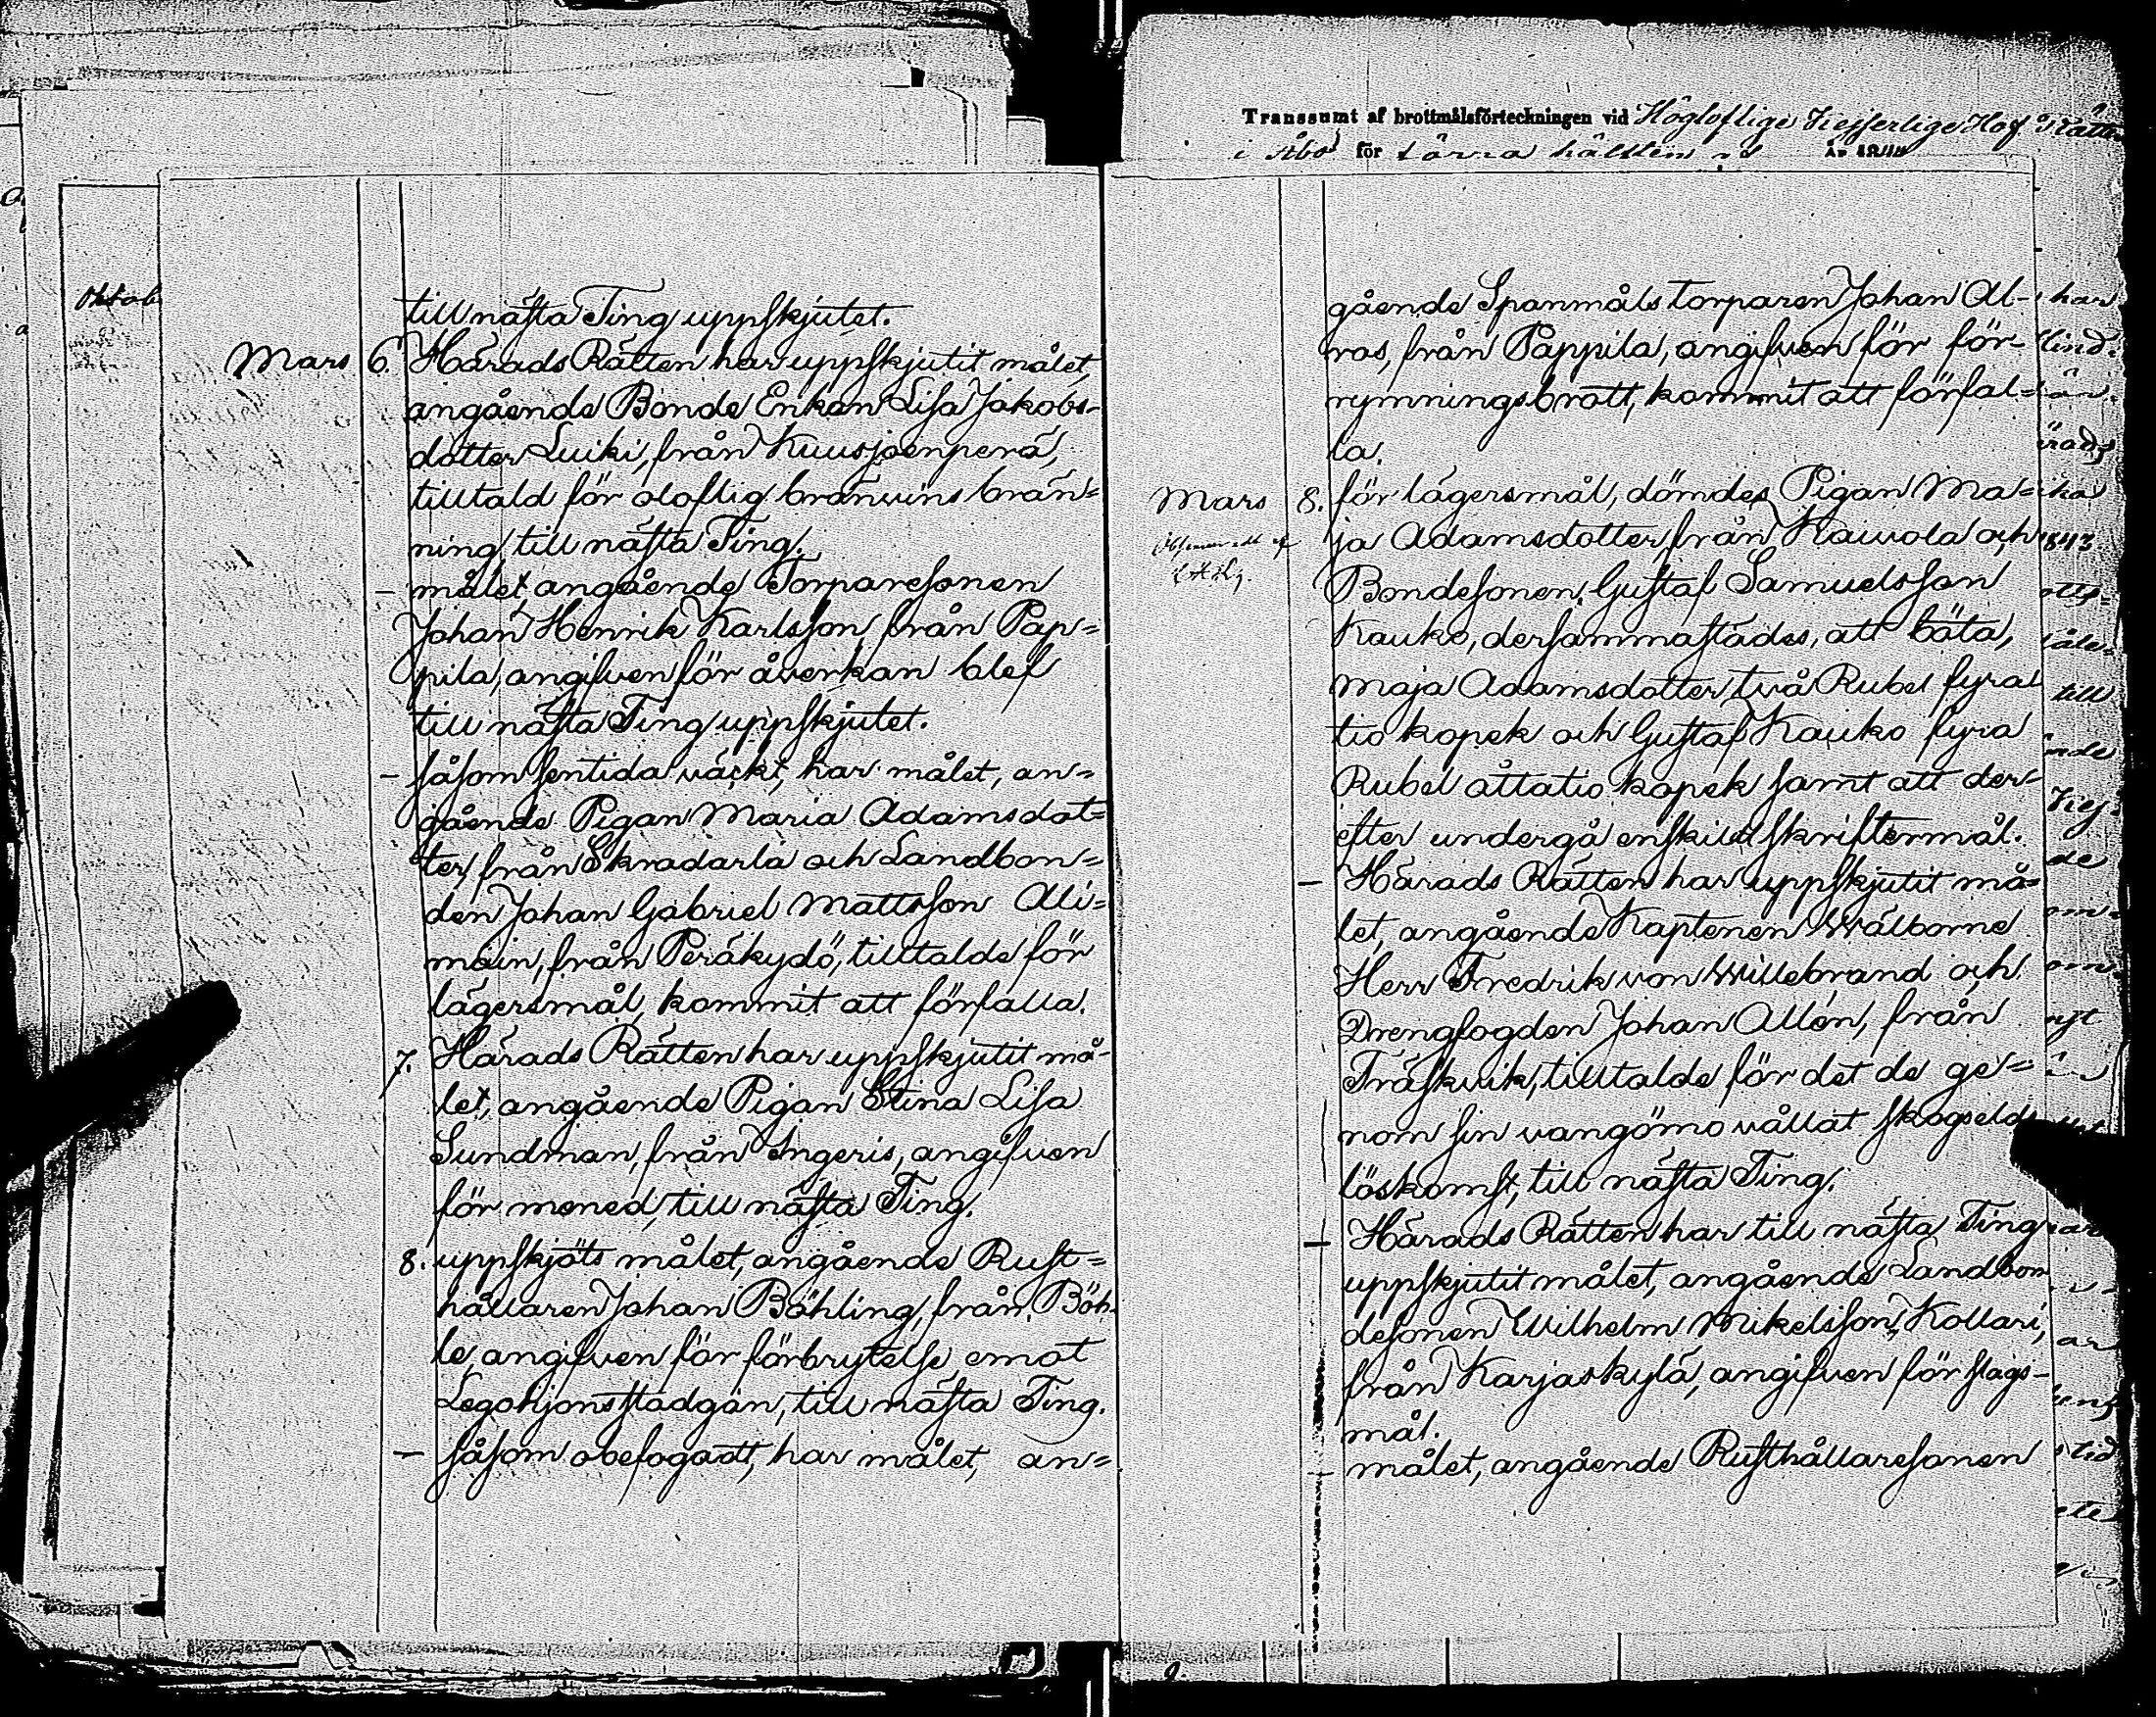 Transsumt af brottmålsförteckningen vid Högloflige Kejserlige Hof Rätten
i Åbo för
Oktob
till nästa Ting uppskjutet.
Mars 6. Härads Rätten har uppskjutit målet,
angående Bonde Enkan Lisa Jakobs-
dotter Luiki, från Kuusjoenperä,
tilltald för oloflig bränvins brän=
ning, till nästa Ting.
– målet, angående Torparesonen
Johan Henrik Karlsson, från Pap=
pila, angifven för åverkan blef
till nästa Ting uppskjutet.
– såsom sentida väckt, har målet, an=
gående Pigan Maria Adamsdot=
ter, från Skradarla och Landbon=
den Johan Gabriel Mattsson Ali=
mäin, från Peräkydö, tilltalde för
lägersmål, kommit att förfalla.
7. Härads Rätten har uppskjutit må-
let, angående Pigan Stina Lisa
Sundman, från Ingeris, angifven
för mened, till nästa Ting.
8. uppskjöts målet, angående Rust=
hållaren Johan Böhling, från Böh-
le, angifven för förbrytelse emot
Legohjonsstadgan, till nästa Ting.
– såsom obefogadt, har målet, an=
gående Spanmåls torparen Johan Al-
ros, från Pappila, angifven för för-
rymningsbrott, kommit att förfal=
la.
Mars 8. för lägersmål, dömdes Pigan Ma=
ja Adamsdotter, från Kaivola och
Bondesonen Gustaf Samuelsson
Kauko, dersammastädes, att böta,
Maja Adamsdotter två Rubel fyra
tio kopek och Gustaf Kauko fyra
Rubel åttatio kopek samt att der-
efter undergå enskildt skriftermål.
– Härads Rätten har uppskjutit må=
let, angående Kaptenen Wälborne
Herr Fredrik von Willebrand och
Drengfogden Johan Allén, från
Träskvik, tilltalde för det de ge=
nom sin vangömo vållat skogselds
löskomst, till nästa Ting.
– Härads Rätten har till nästa Ting
uppskjutit målet, angående Landbon
desonen Wilhelm Mikelsson Kollari,
från Karjaskylä, angifven för slags-
mål.
– målet, angående Rusthållaresonen